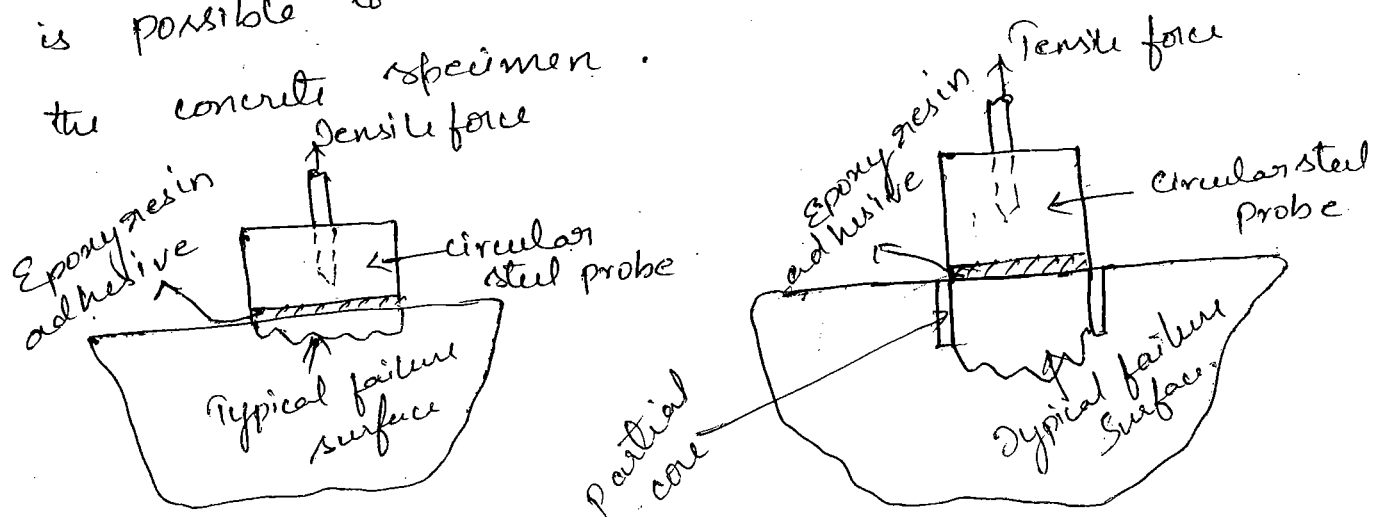 is possible
the concrete specimen.
Tensile force
Epoxy resin
adhesive
circular
steel probe
Typical failure
surface
Tensile force
Epoxy resin
adhesive
Circular steel
Probe
Partial
core
Typical failure
Surface.